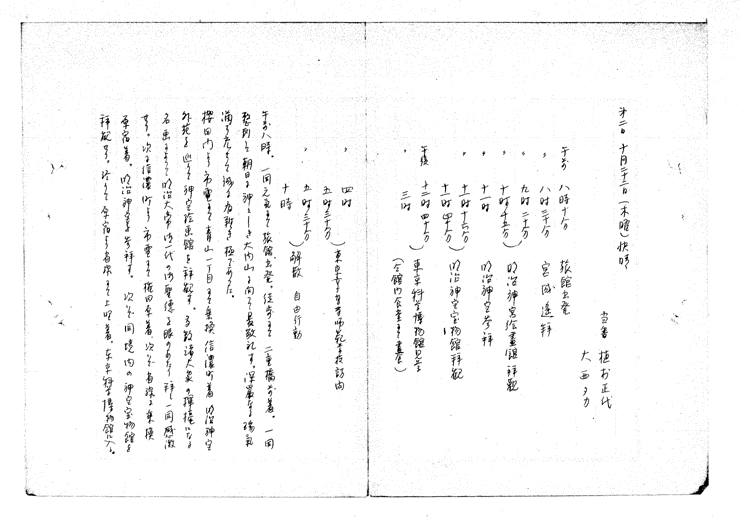 第二日 十月二十二日(木曜)快晴
当番 植村正代
大西タカ
午前 八時十分 旅館出発
〃 八時三十分 宮城遥拝
〃 九時二十分 明治神宮絵画館拝観
〃 十時十五分
〃 十一時 明治神宮参拝
〃 十一時十六分 明治神宮宝物館拝観
十一時四十分
午後 十二時四十分 東京科学博物館見学
〃 三時 (全館内食堂にて昼食)
〃 四時 東京女子高等師範学校訪問
五時三十分
〃 五時三十分 解散 自由行動
十時
午前八時、一同元気にて旅館出発。徒歩にて二重橋前着。一同
整列して朝日に神々しき大内山に向つて最敬礼す。深厳なる瑞気
満ち充ちて誠に有難き極であつた。
桜田門より市電にて青山一丁目にて乗換 信濃町着 明治神宮
外苑を巡りて神宮絵画館を拝観す。多数諸大家の揮毫になる
名画によりて明治大帝御一代の御聖徳を眼のあたり拝し一同感激
せり。次に信濃町より市電にて権田原着 次で省線に乗換
原宿着。明治神宮を参拝す。次で同境内の神宮宝物館を
拝観せり。終つて原宿より省線にて上野着。東京科学博物館に入る。